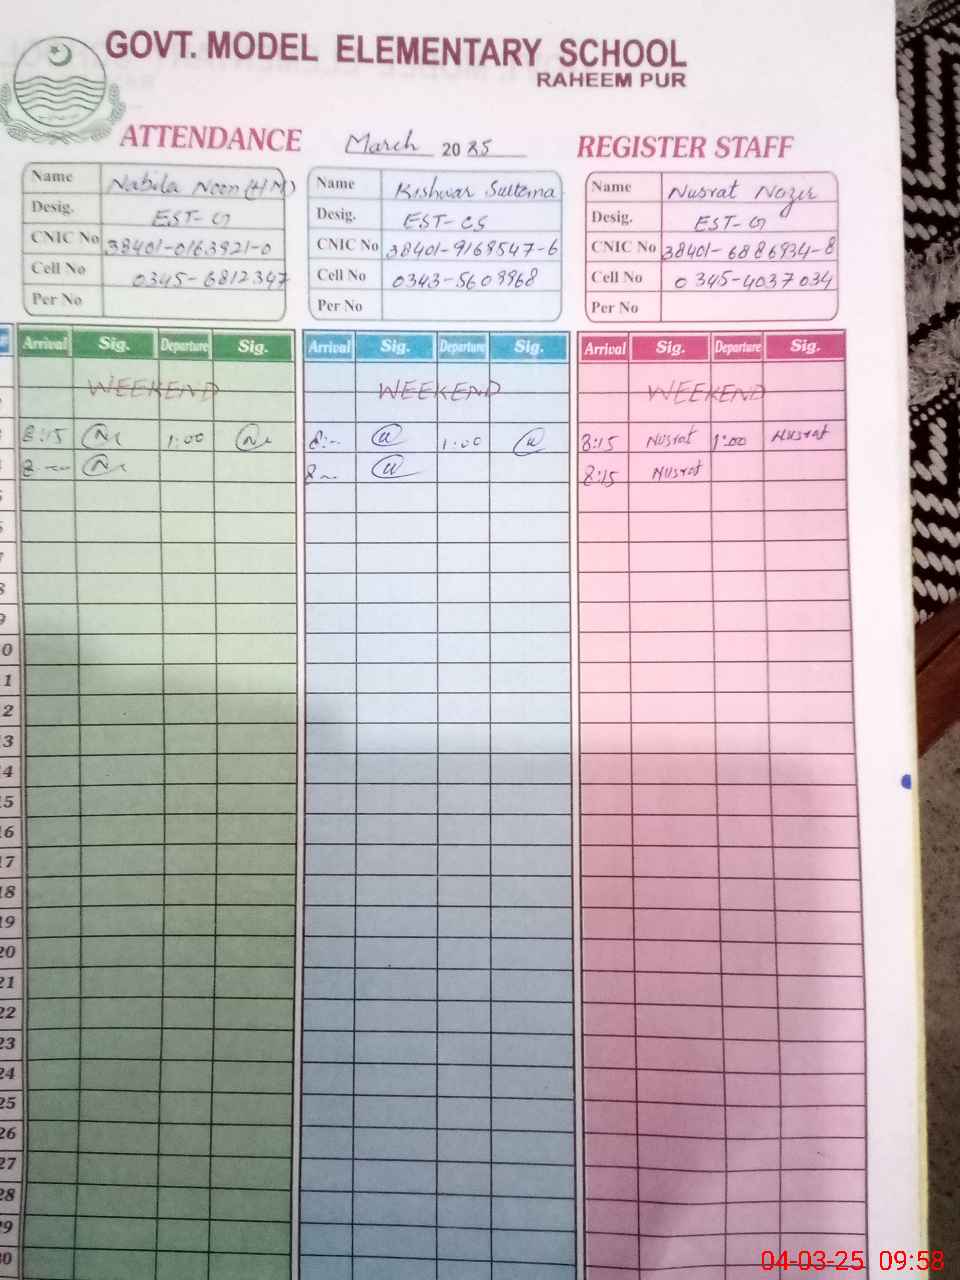 GOVT. MODEL ELEMENTARY SCHOOL
RAHEEM PUR
ATTENDANCE March 2025 REGISTER STAFF
Name Nabila Noon (HM)
Desig. EST-G
CNIC No 38401-0163921-0
Cell No 0345-6812347
Per No
Name Kishwar Sultana
Desig. EST-CS
CNIC No 38401-9169547-6
Cell No 0343-5609968
Per No
Name Nusrat Nazir
Desig. EST-G
CNIC No 38401-6886934-8
Cell No 0345-4037034
Per No
Arrival Sig. Departure Sig. Arrival Sig. Departure Sig. Arrival Sig. Departure Sig.
WEEKEND WEEKEND WEEKEND
8:15 1:00 8:- 1:00 8:15 Nusrat 1:00 Nusrat
8 8 8:15 Nusrat
5
6
7
8
9
10
11
12
13
14
15
16
17
18
19
20
21
22
23
24
25
26
27
28
29
30
04-03-25 09:58